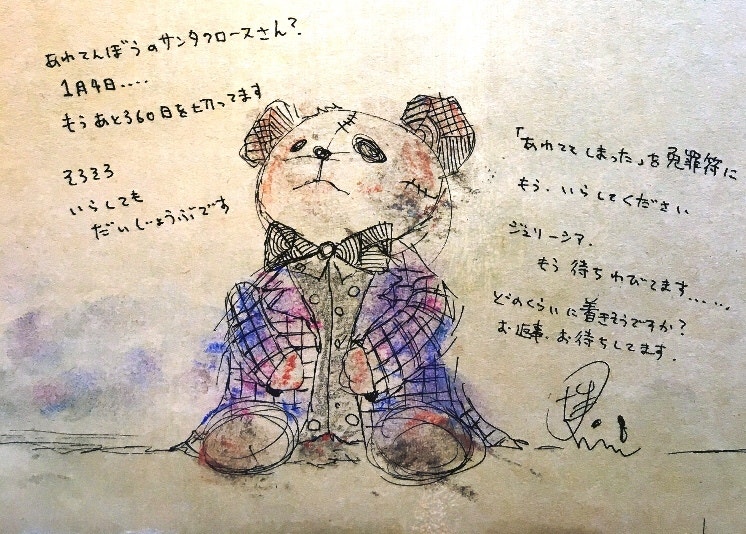 あわてんぼうのサンタクロースさん?
1月4日....
もうあと360日を切ってます
そろそろ
いらしても
だいじょうぶです
「あわてて しまった」を 免罪符に
もう.いらしてください
ジェリーシア.
もう 待ちわびてます......
どのくらいに着きそうですか?
お返事.お待ちしてます.